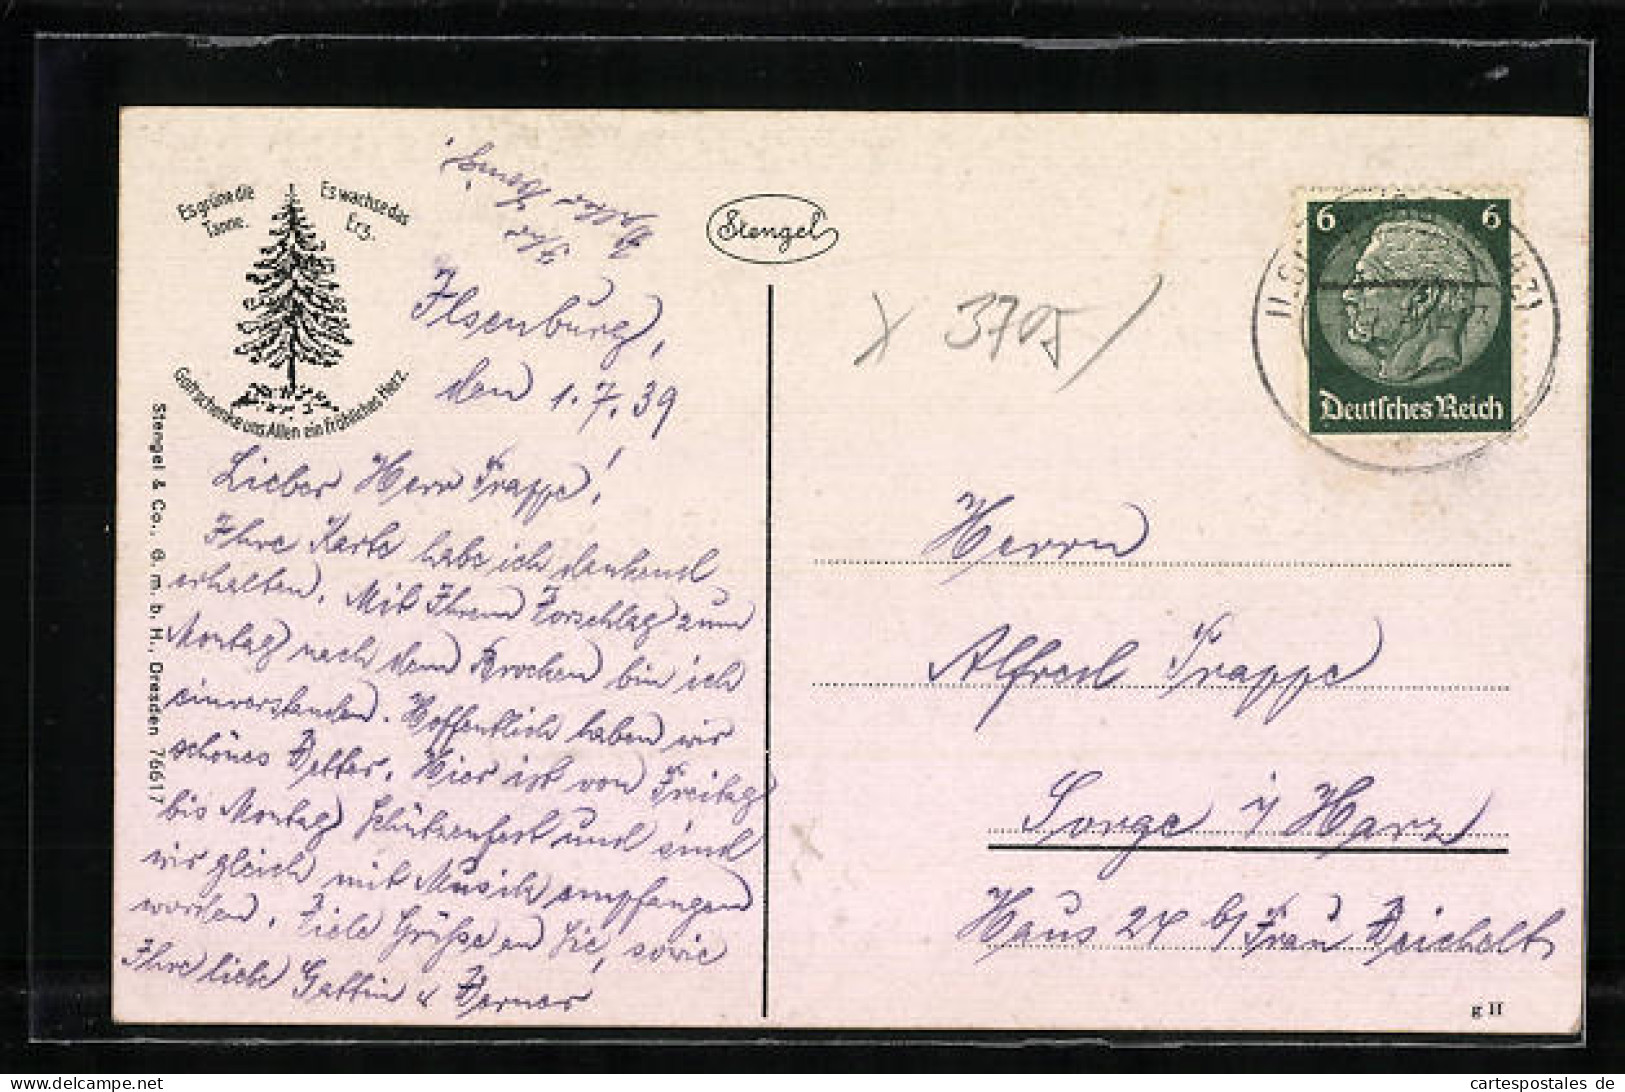 Es grüne die
Tanne.
Es wachse das
Erz.
Gott schenke uns Allen ein fröhliches Harz.
Stengel & Co., G. m. b. H., Dresden 76617
Stengel
Ihr
Ilsenburg,
den 1.7.39
Lieber Herr Trappe!
Ihre Karte habe ich dankend
erhalten. Mit Ihrem Vorschlag zum
Montag nach dem Brocken bin ich
einverstanden. Hoffentlich haben wir
schönes Wetter. Hier ist von Freitag
bis Montag Schützenfest und sind
wir gleich mit Musik empfangen
worden. Viele Grüße an Sie, sowie
Ihre liebe Gattin u Werner
3705
6 6
Deutsches Reich
Herrn
Alfred Trappe
Sorge i/ Harz
Haus 24 b/ Frau Weichelt
g II
cartespostales de
delcampe.net